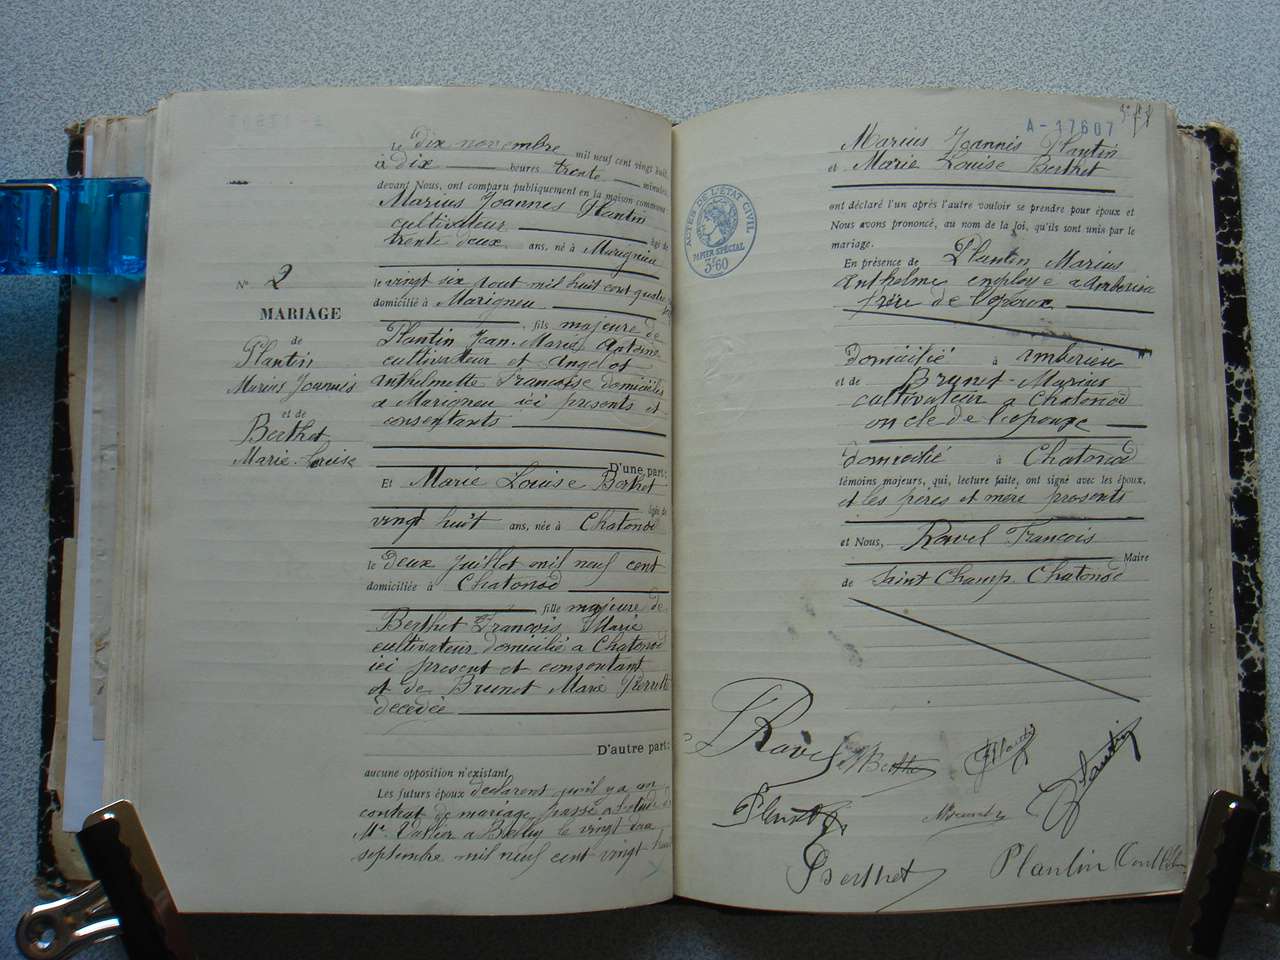 Le dix novembre mil neuf cent vingt huit
à dix heures trente minutes
devant Nous, ont comparu publiquement en la maison commune
Marius Joannes Plantin
cultivateur âgé de
trente deux ans, né à Marignieu
le vingt six aout mil huit cent quatre
domicilié à Marigneu
fils majeure de
Plantin Jean-Marie Antoine
cultivateur et
Anthelmette Francoise domiciliés
a Marigneu ici presents et
consentants
D'une part:
Et Marie Louise Berthet
âgée de
vingt huit ans, née à Chatonod
le deux juillet mil neuf cent
domiciliée à Chatonod
fille majeure de
Berthet François Marie
cultivateur domicilié a Chatonod
ici present et consentant
et de Brunet Marie Pierrette
decedée
D'autre part:
aucune opposition n'existant
Les futurs époux declarent qu'il y a un
contrat de mariage passé a l'etude de
Me Vallier a Belley le vingt
septembre mil neuf cent vingt huit
N° 2
MARIAGE
de
Plantin
Marius Joannis
et de
Berthet
Marie-Louise
A-17607
ACTES DE L'ÉTAT CIVIL
PAPIER SPÉCIAL
3F60
Marius Joannis Plantin
et Marie Louise Berthet
ont déclaré l'un après l'autre vouloir se prendre pour époux et
Nous avons prononcé, au nom de la loi, qu'ils sont unis par le
mariage.
En présence de Plantin Marius
Anthelme employe a Amberieu
frère de l'epoux
Domicilié à Amberieu
et de Brunet-Marius
cultivateur a Chatonod
oncle de l'epouse
domicilié à Chatonod
témoins majeurs, qui, lecture faite, ont signé avec les époux,
et les pères et mère presents
et Nous, Ravel Francois
Maire
de Saint Champ Chatonod
Ravel
Berthet
Plantin
Plantin
Plantin
Brunet
Berthet
Plantin